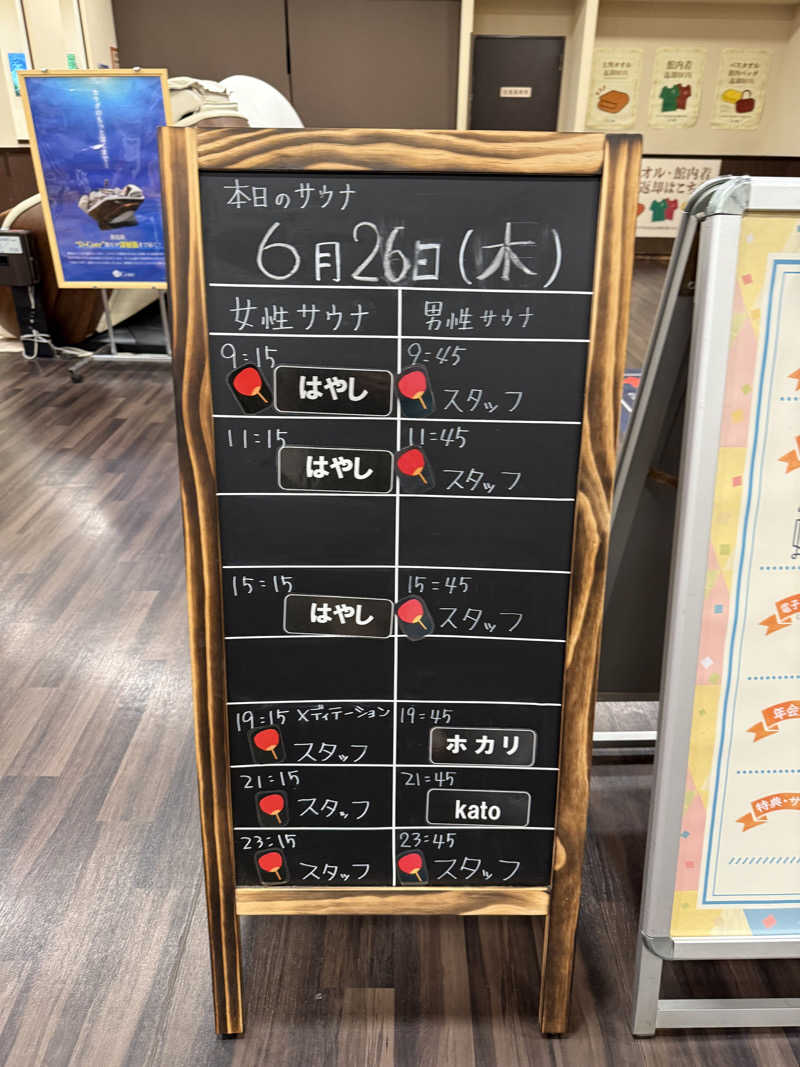 本日のサウナ
6月26日(木)
女性サウナ 男性サウナ
9:15 9:45
はやし スタッフ
11:15 11:45
はやし スタッフ
15:15 15:45
はやし スタッフ
19:15 メディテーション 19:45
スタッフ ホカリ
21:15 21:45
スタッフ kato
23:15 23:45
スタッフ スタッフ
館内着
オル・館内着
返却はこち
年会
特典・サ